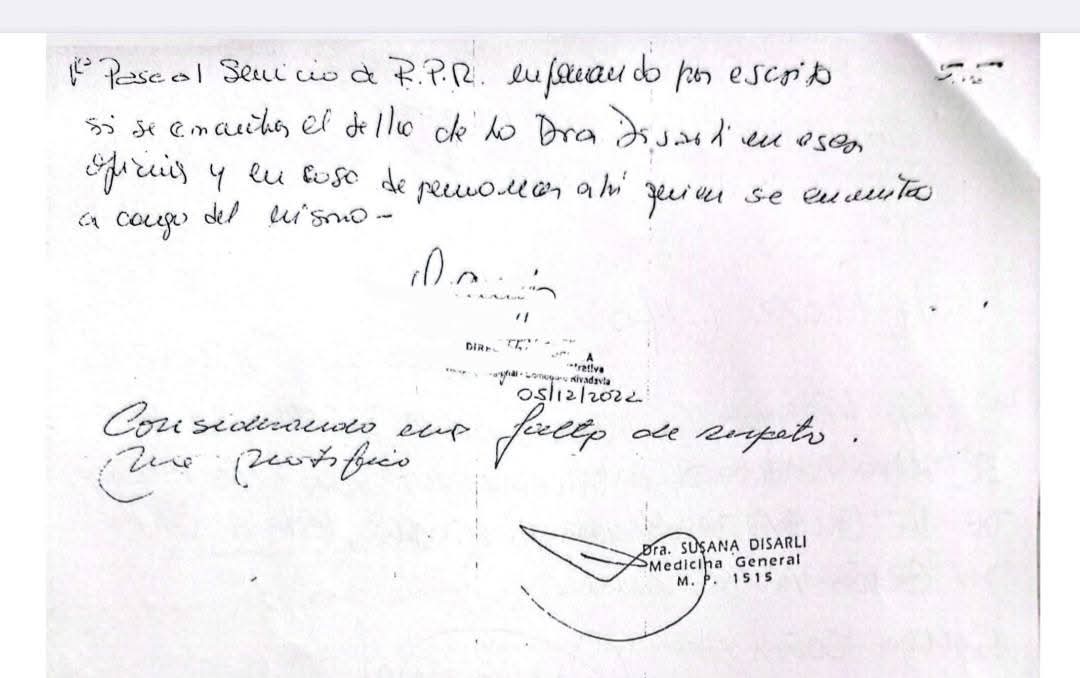 Pase al Servicio de R.P.R. informando por escrito
si se encuentra el sello de la Dra Disarli en esa
oficina y en caso de permanecer ahí quien se encuentra
a cargo del mismo -
05/12/2022
Considerando una falta de respeto.
me notifico
Dra. SUSANA DISARLI
Medicina General
M. P. 1515